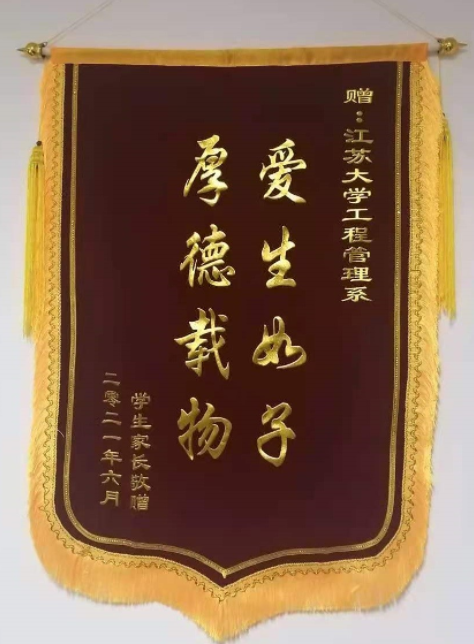 赠：江苏大学工程管理系
爱生如子
厚德载物
学生家长敬赠
二零二一年六月